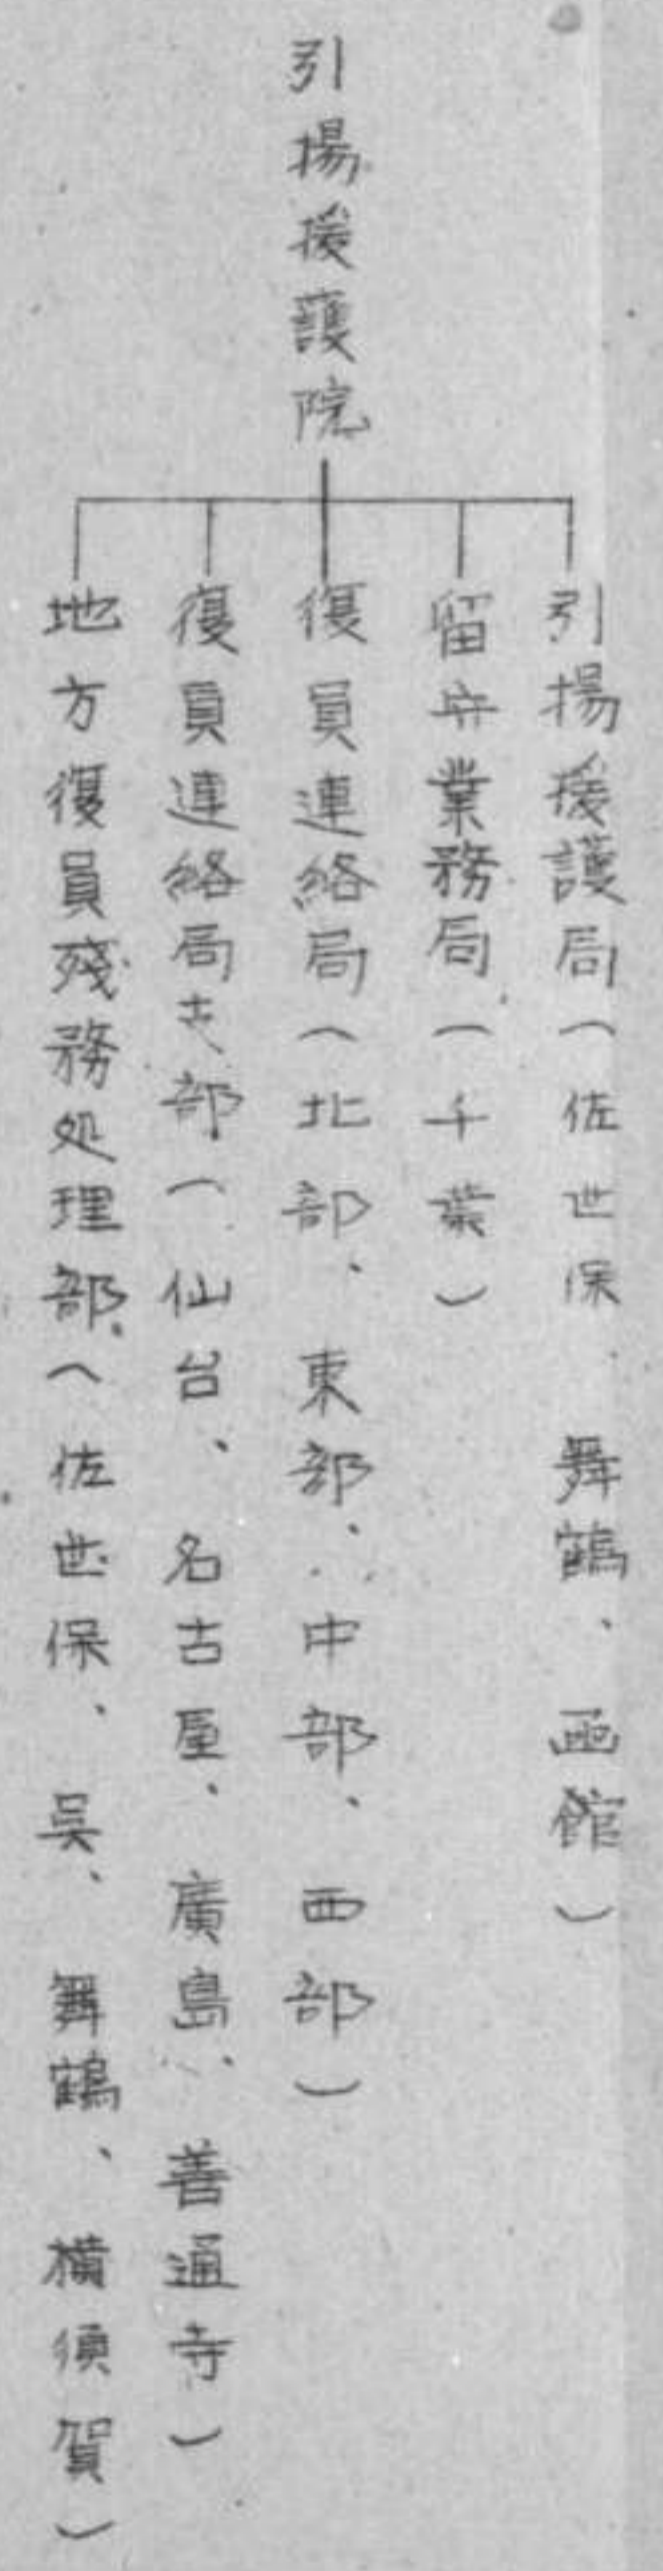 引揚援護院
引揚援護局（佐世保、舞鶴、函館）
留守業務局（千葉）
復員連絡局（北部、東部、中部、西部）
復員連絡局支部（仙台、名古屋、廣島、善通寺）
地方復員残務処理部（佐世保、呉、舞鶴、横須賀）